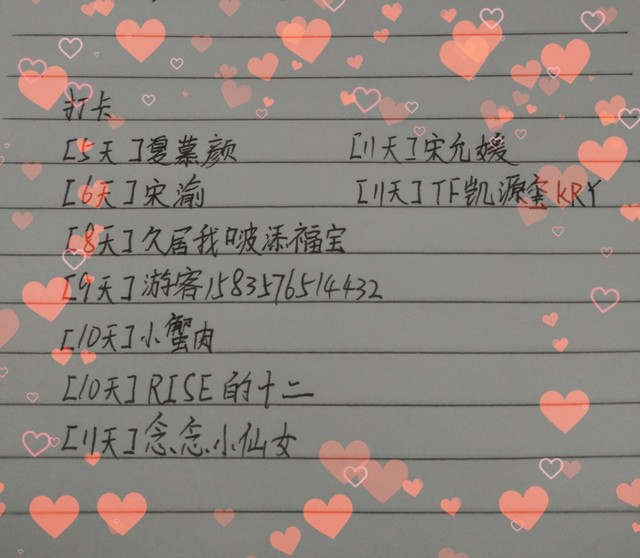 打卡
[5天]夏慕颜 [11天]宋允媛
[6天]宋渝 [11天]TF凯源玺KRY
[8天]久居我啵添福宝
[9天]游客1583576514432
[10天]小蟹肉
[10天]RISE的十二
[11天]念念小仙女